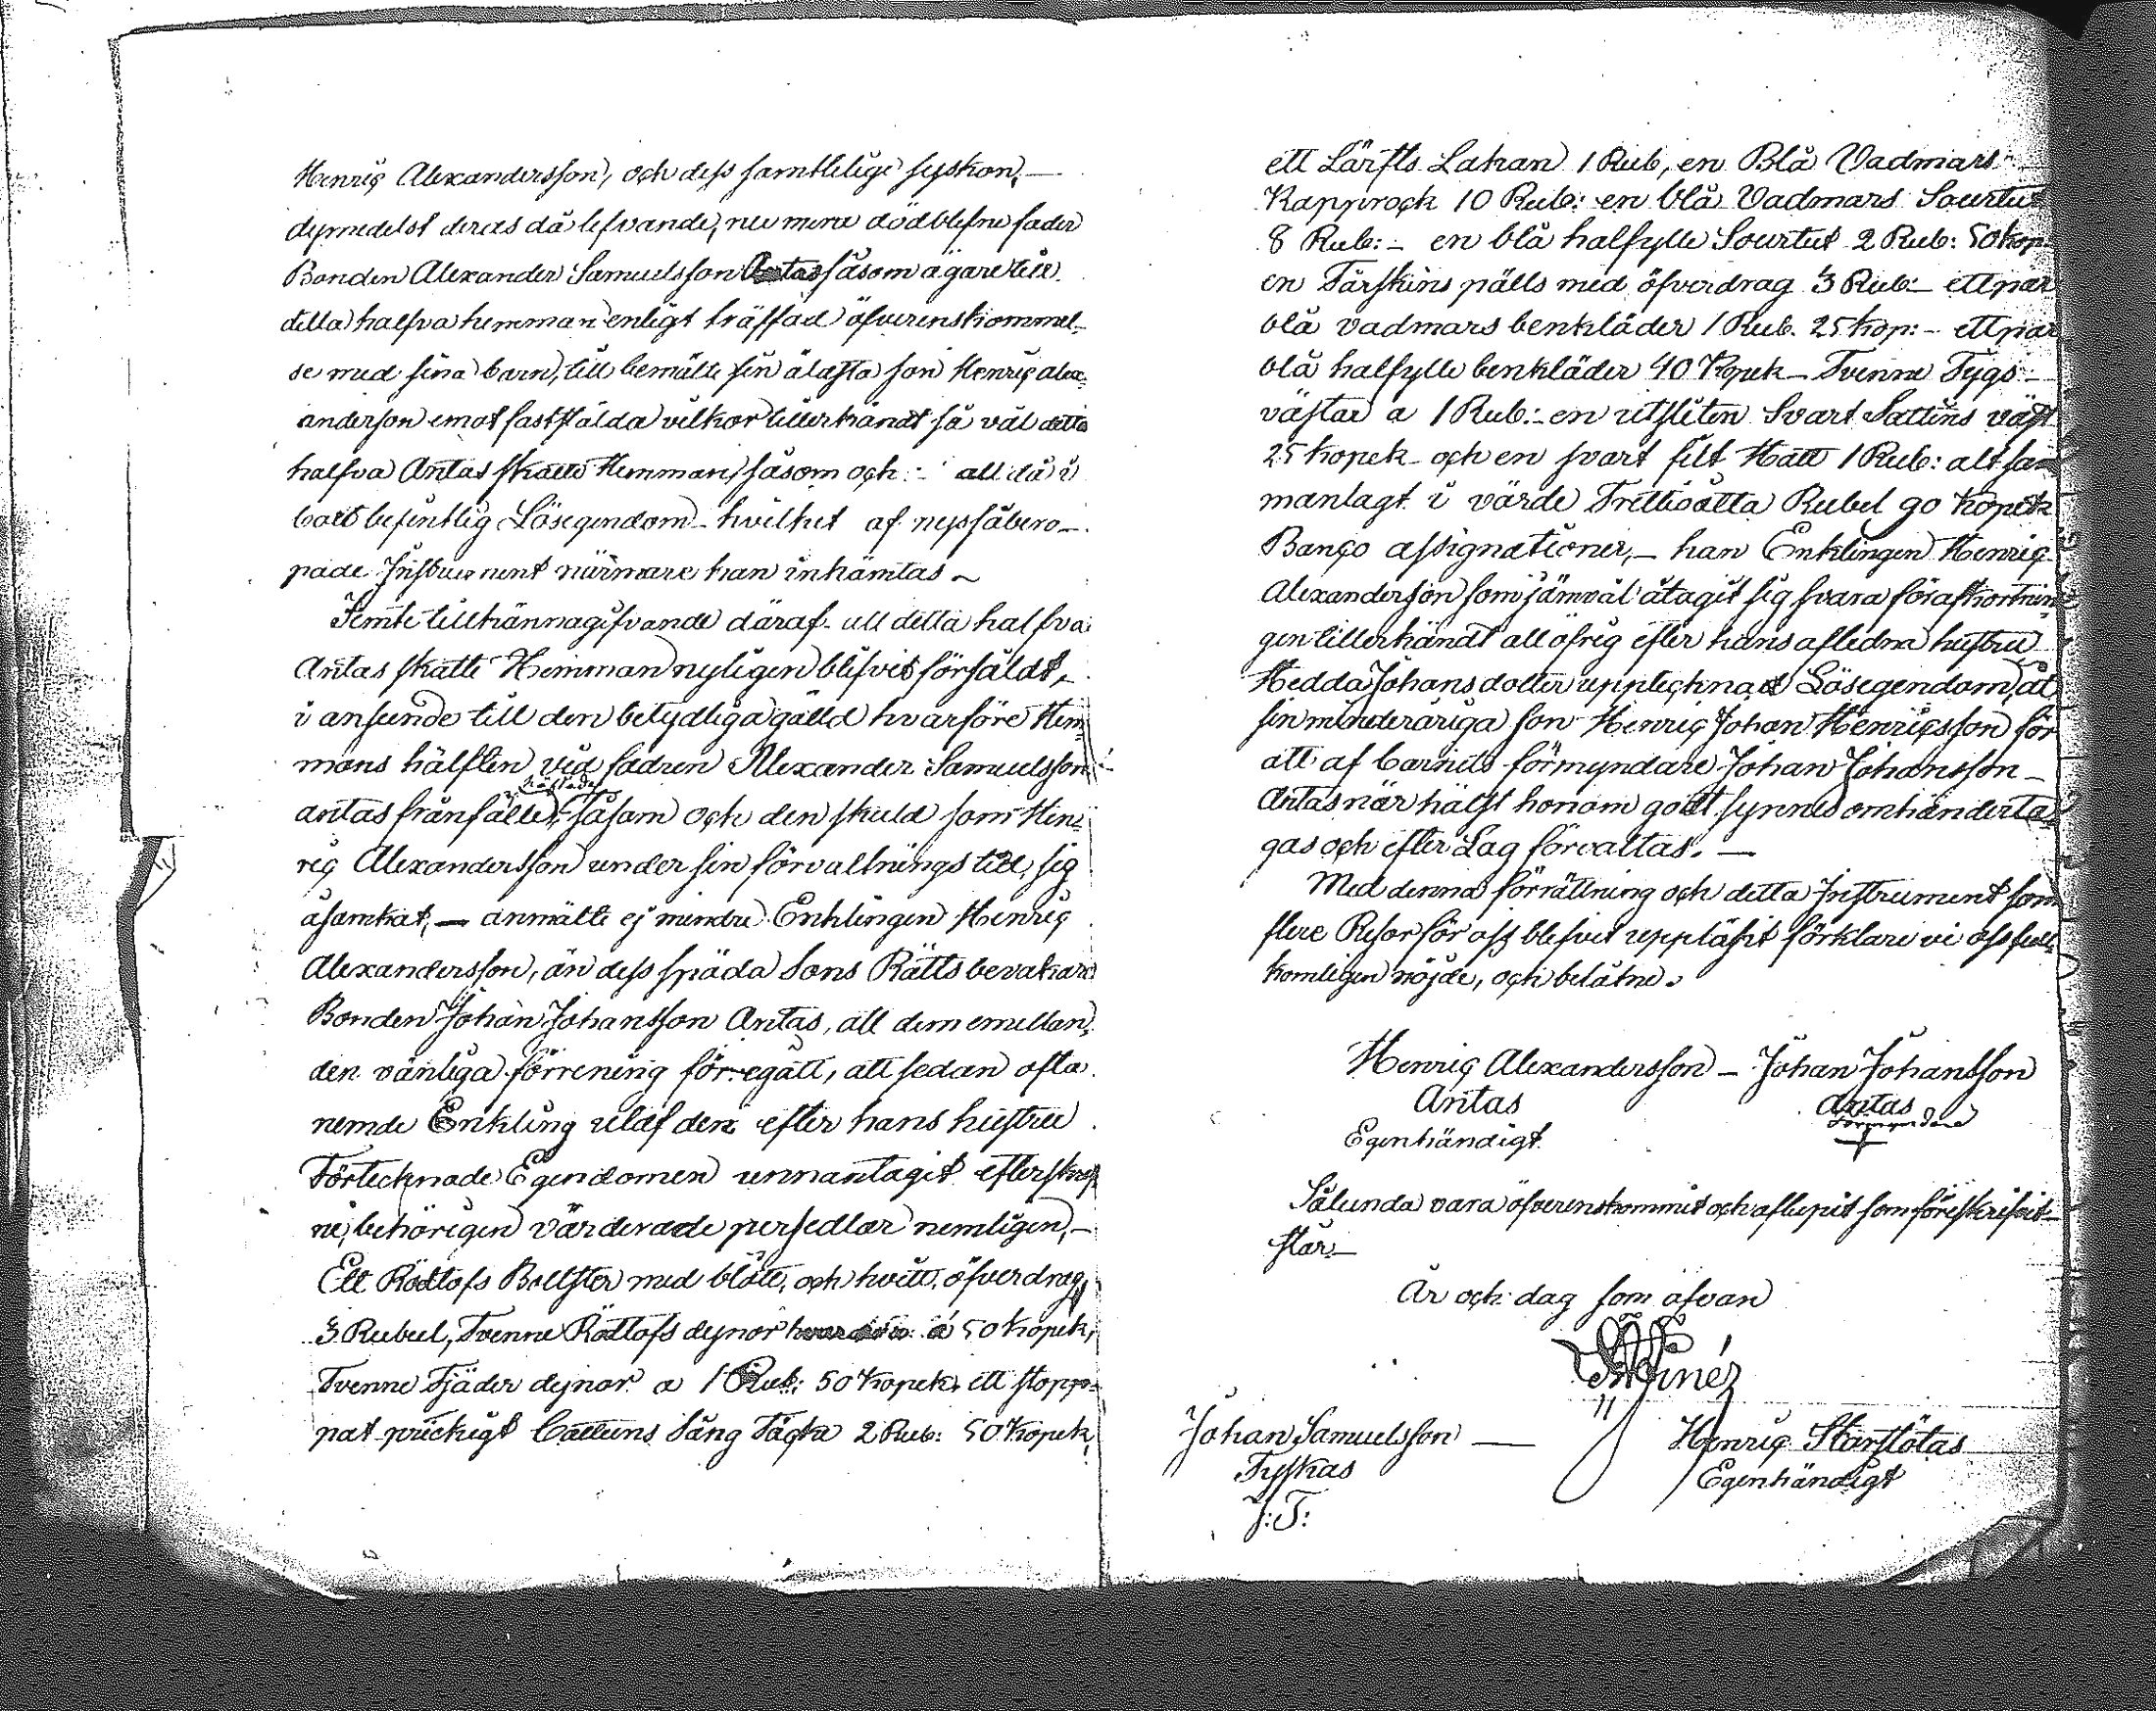 Henric Alexandersson, och dess samtlelige syskon, —
dymedelst deras då lefvande, nu mera dödblefne fader
Bonden Alexander Samuelsson Antas såsom ägare till
detta halfva hemman enligt träffad öfverenskommel-
se med sina barn, till bemälte sin älasta son Henric alex-
anderson emot fastställda vilkor tillerkändt så väl detta
halfva Antas skatte Hemman, såsom och all då i
boet befintlig Lösegendom – hvilket af nyssåbero-
pade Instrument närmare kan inhämtas ~
Jemte tillkännagifvande däraf att detta halfva
Antas skatte Hemman nyligen blifvit försäldt,
i anseende till den betydliga gälld hvarföre Hem-
mans hälften vid fadren Alexander Samuelsson
häftade
antas frånfälle, såsom och den skuld som Hen-
ric Alexandersson under sin förvaltnings tid, sig
åsamkat, — anmälte ej mindre Enklingen Henric
Alexandersson, än dess späda Sons Rätts bevakare
Bonden Johan Johansson Antas, att dem emellan,
den vänliga förrening föregått, att sedan ofta
nemde Enkling utaf den efter hans hustru
Förtecknade Egendomen unnantagit efterskref-
ne, behörigen värderade persedlar nemligen, –
Ett Rödtofs Bolster med blått, och hvitt, öfverdrag,
3 Rubel, Tvenne Rödtofs dynor á 50 kopek,
Tvenne Fjäder dynor a 1 Rub: 50 Kopek, ett stopp-
pat prickigt Cattuns Säng Täcke 2 Rub: 50 Kopek,
ett Lärfts Lakan 1 Rub, en Blå Vadmars
Kapprock 10 Rub: en blå Vadmars Sourtut
8 Rub: – en blå halfylle Sourtut 2 Rub: 50 kop:
en Fårskins pälls med öfverdrag 3 Rub: – ett par
blå vadmars benkläder 1 Rub. 25 kop: – ett par
blå halfylle benkläder 40 Kopek – Tvenne Tygs
västar a 1 Rub: – en utsliten Svart Sattins väst
25 kopek – och en svart filt Hatt 1 Rub: alt sam
manlagt i värde Trettioåtta Rubel 90 kopek
Banco assignationer, – han Enklingen Henric
Alexanderson som jämväl åtagit sig svara för afkortnin
gen tillerkändt all öfrig efter hans aflidna hustru
Hedda Johans dotter upptecknad Lösegendom, åt
sin minderåriga son Henric Johan Henricsson för
att af barnets förmyndare Johan Johansson –
Antas när hälst honom godt synnes omhänderta
gas och efter Lag förvaltas. —
Med denna förrättning och detta Instrument som
flere Resor för oss blifvit uppläsit förklare vi oss full-
komligen nöjde, och belåtne.
Henric Alexandersson – Johan Johansson
Antas Antas
Egenhändigt. Förmyndare
Sålunda vara öfverenskommit och aflupit som föreskrifvit –
står. –
År och dag som åfvan
Johan Samuelsson — Henric Starslötas
Tyskas Egenhändigt
J: T: